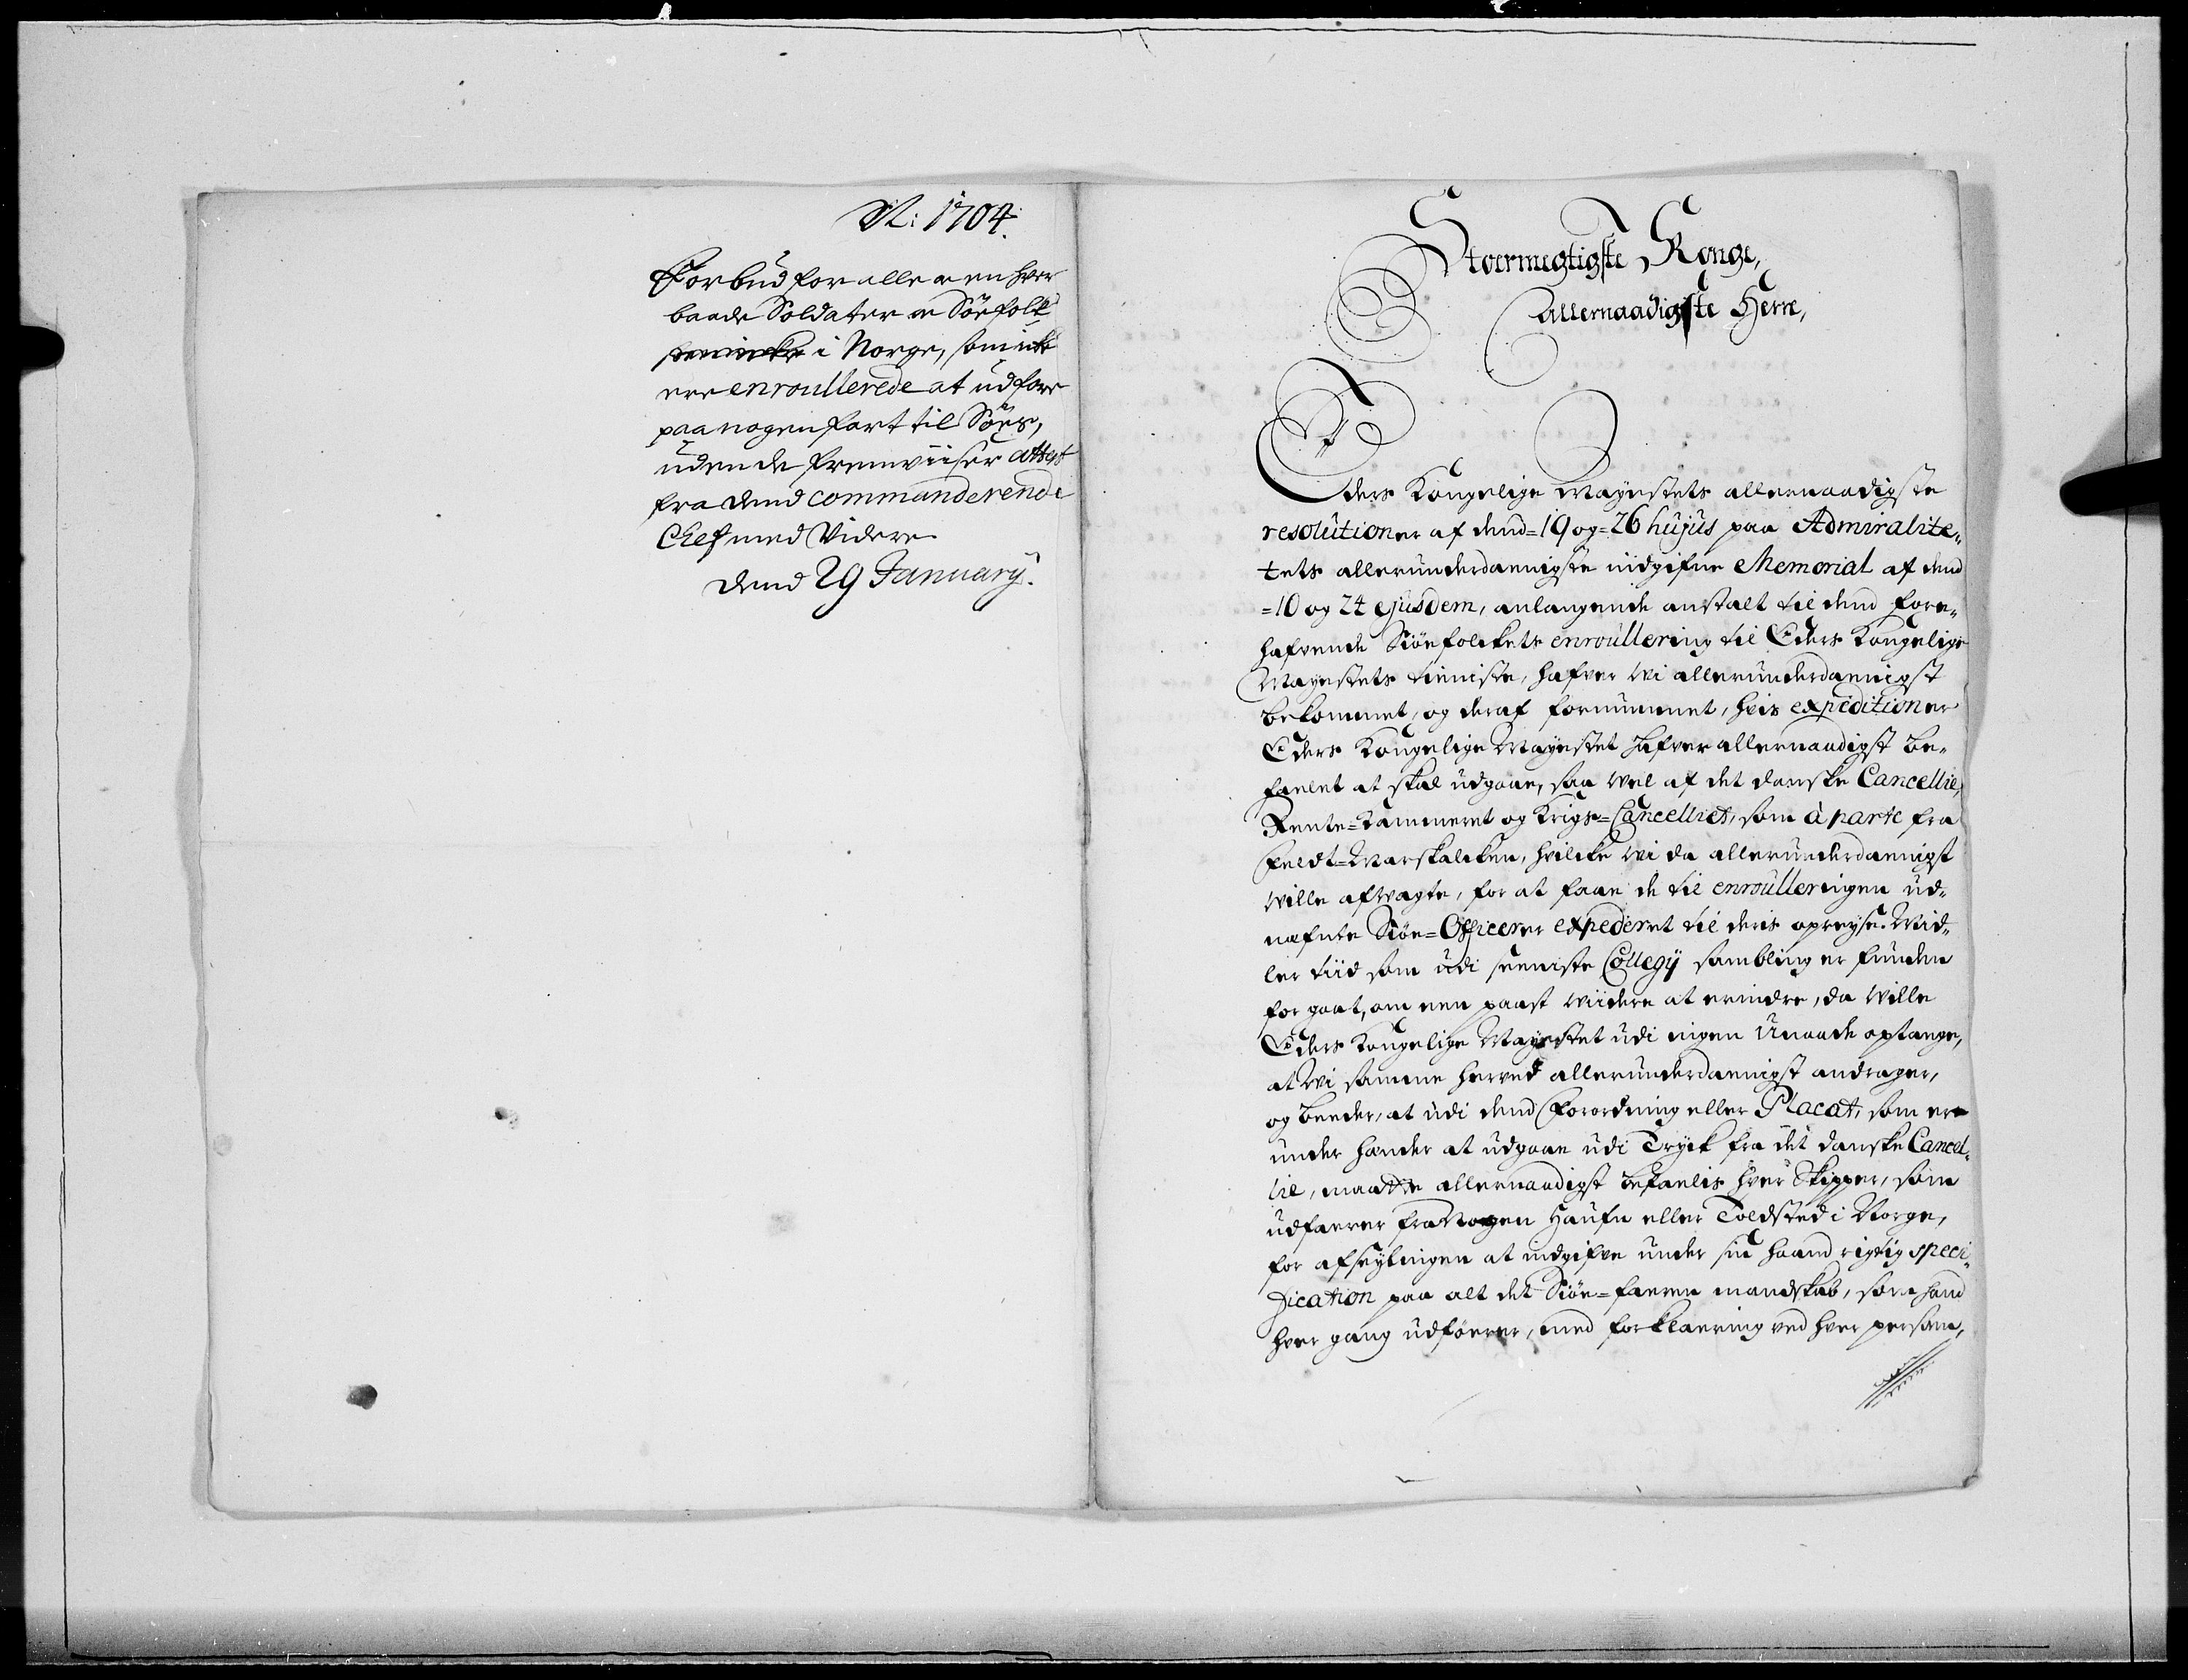 N: 1704.
Forbud for alle og en hver
baade Soldater og Söefolk
i Norge, som icke
ere enroullerede at udfare
paa nogen fart til Söes,
uden de fremviiser attest
fra dend commanderende
Chef med Videre
dend 29 January.
Stoermegtigste Konge,
Allernaadigste Herre,
Eders Kongelige Mayestets allernaadigste
resolutioner af dend=19 og=26 hujus paa Admiralite-
tets allerunderdaanigste indgifne Memorial af dend
=10 og 24 ejusdem, anlangende anstalt til dend fore-
hafvende Siöefolckets enroullering til Eders Kongelige
Mayestets tieniste, hafver wi allerunderdaanigst
bekommet, og deraf fornummet, hvis expeditioner
Eders Kongelige Mayestet hafver allernaadigst be-
faelet at skal udgaae, saa vel af det danske Cancellie,
Rente=Kammeret og Krigs=Cancelliet, som à parte fra
Feldt=Marskalcken, hvilcke wi da allerunderdaanigst
wille afvagte, for at faae de til enroulleringen ud-
nefnte Siöe=Officerer expederet til deris opreyse. Mid-
ler tiid som udi seeniste Collegij sambling er funden
for gaat, om een paast wiidere at erindre, da wille
Eders Kongelige Mayestet udi ingen Unaade optange,
at wi samme herved allerunderdaanigst andrager,
og beeder, at udi dend Forordning eller Placat, som er
under hænder at udgaae udi Tryck fra det danske Cancel-
lie, maatte allernaadigst befaelis hver Skipper, som
udfaerer fra Nogen Haufn eller Toldsted i Norge,
for afseylingen at indgifve under sin haand rigtig speci-
fication paa alt det Siöe=faerne mandskab, som hand
hver gang udföerer, med forklaering ved hver person,